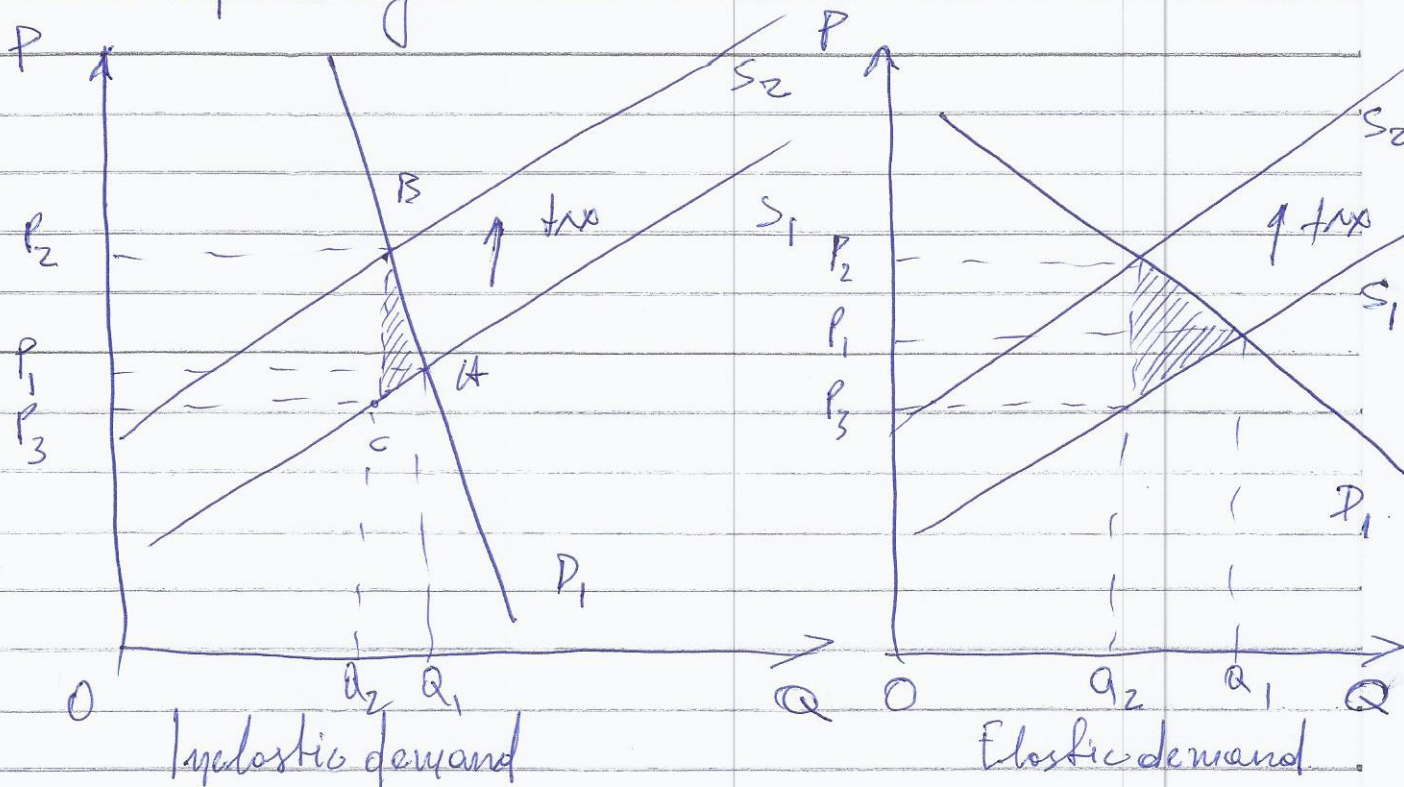 P
S2
B
S1
↑ tax
P2
P1
A
P3
C
D1
O
Q2
Q1
Q
Inelastic demand
P
S2
↑ tax
P2
S1
P1
P3
D1
O
Q2
Q1
Q
Elastic demand